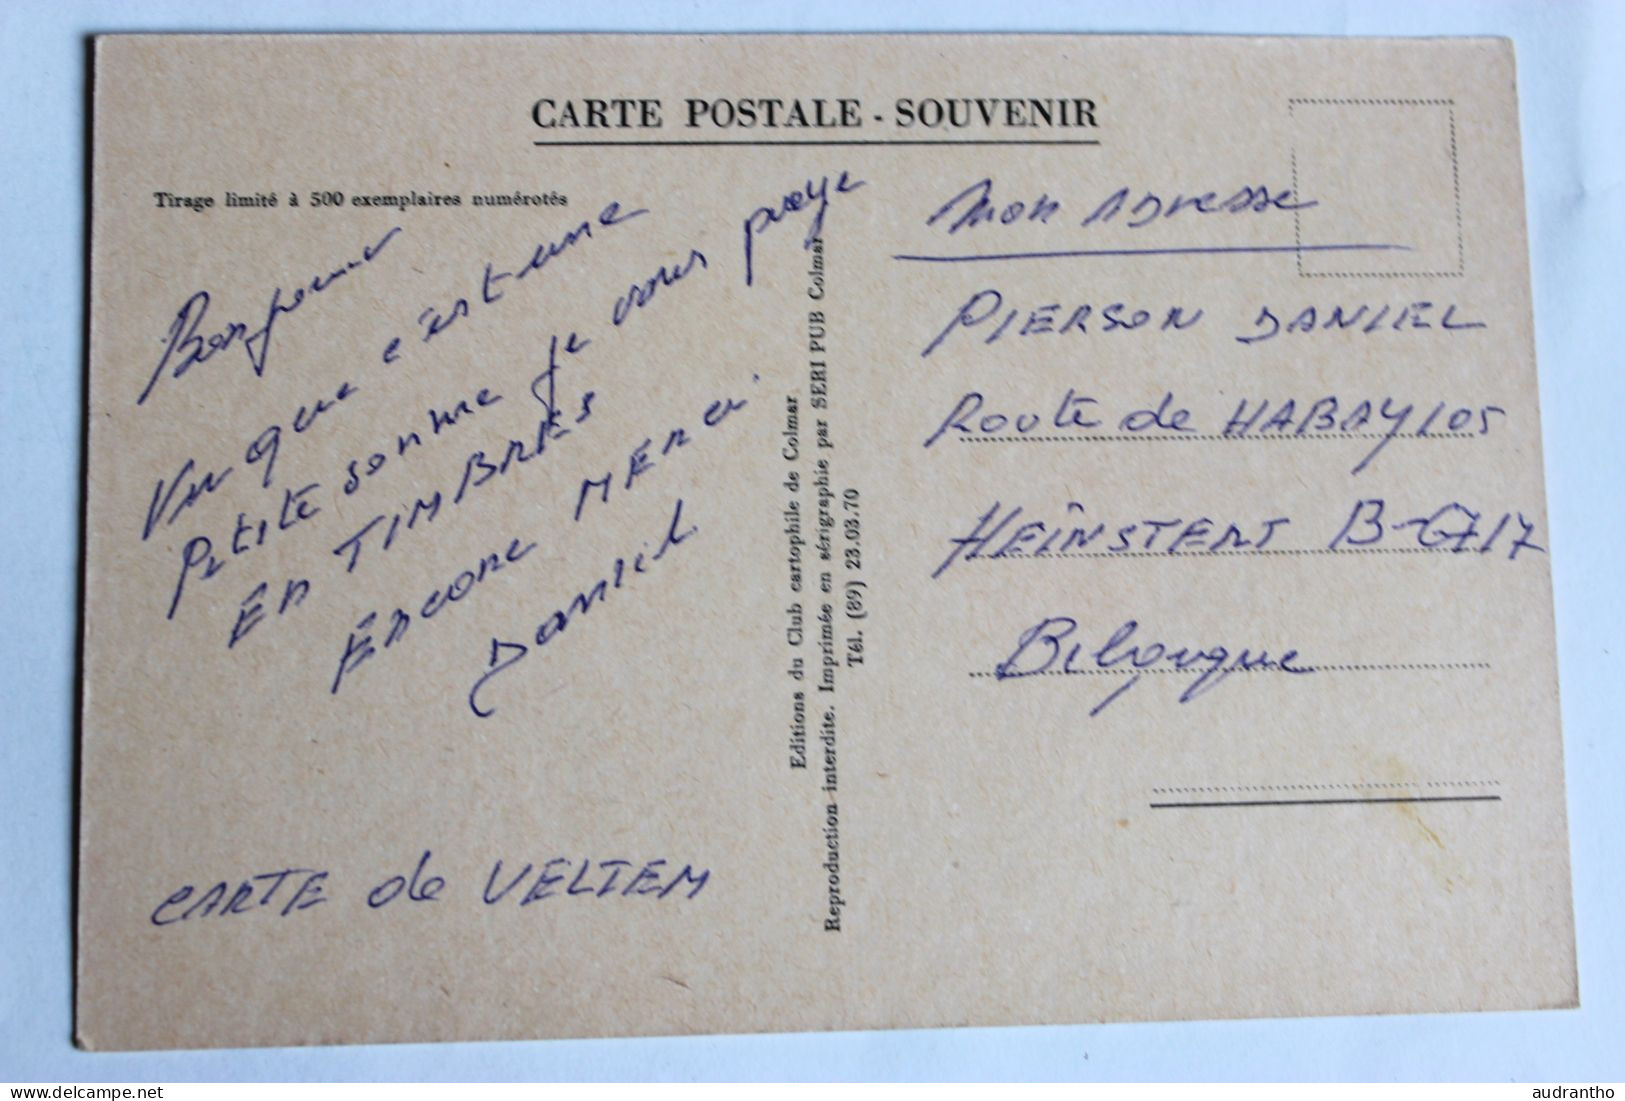 CARTE POSTALE - SOUVENIR
Tirage limité à 500 exemplaires numérotés
Bonjour
Vu que c'est une
Petite somme je vous paye
EN TIMBRES
Encore MERCI
Daniel
CARTE de VELTEM
Editions du Club cartophile de Colmar
Reproduction interdite. Imprimée en sérigraphie par SERI PUB Colmar
Tél. (89) 23.03.70
Mon ADresse
PIERSON DANIEL
Route de HABAY 105
HEÏNSTERT B-6717
Belgique
delcampe.net
audrantho